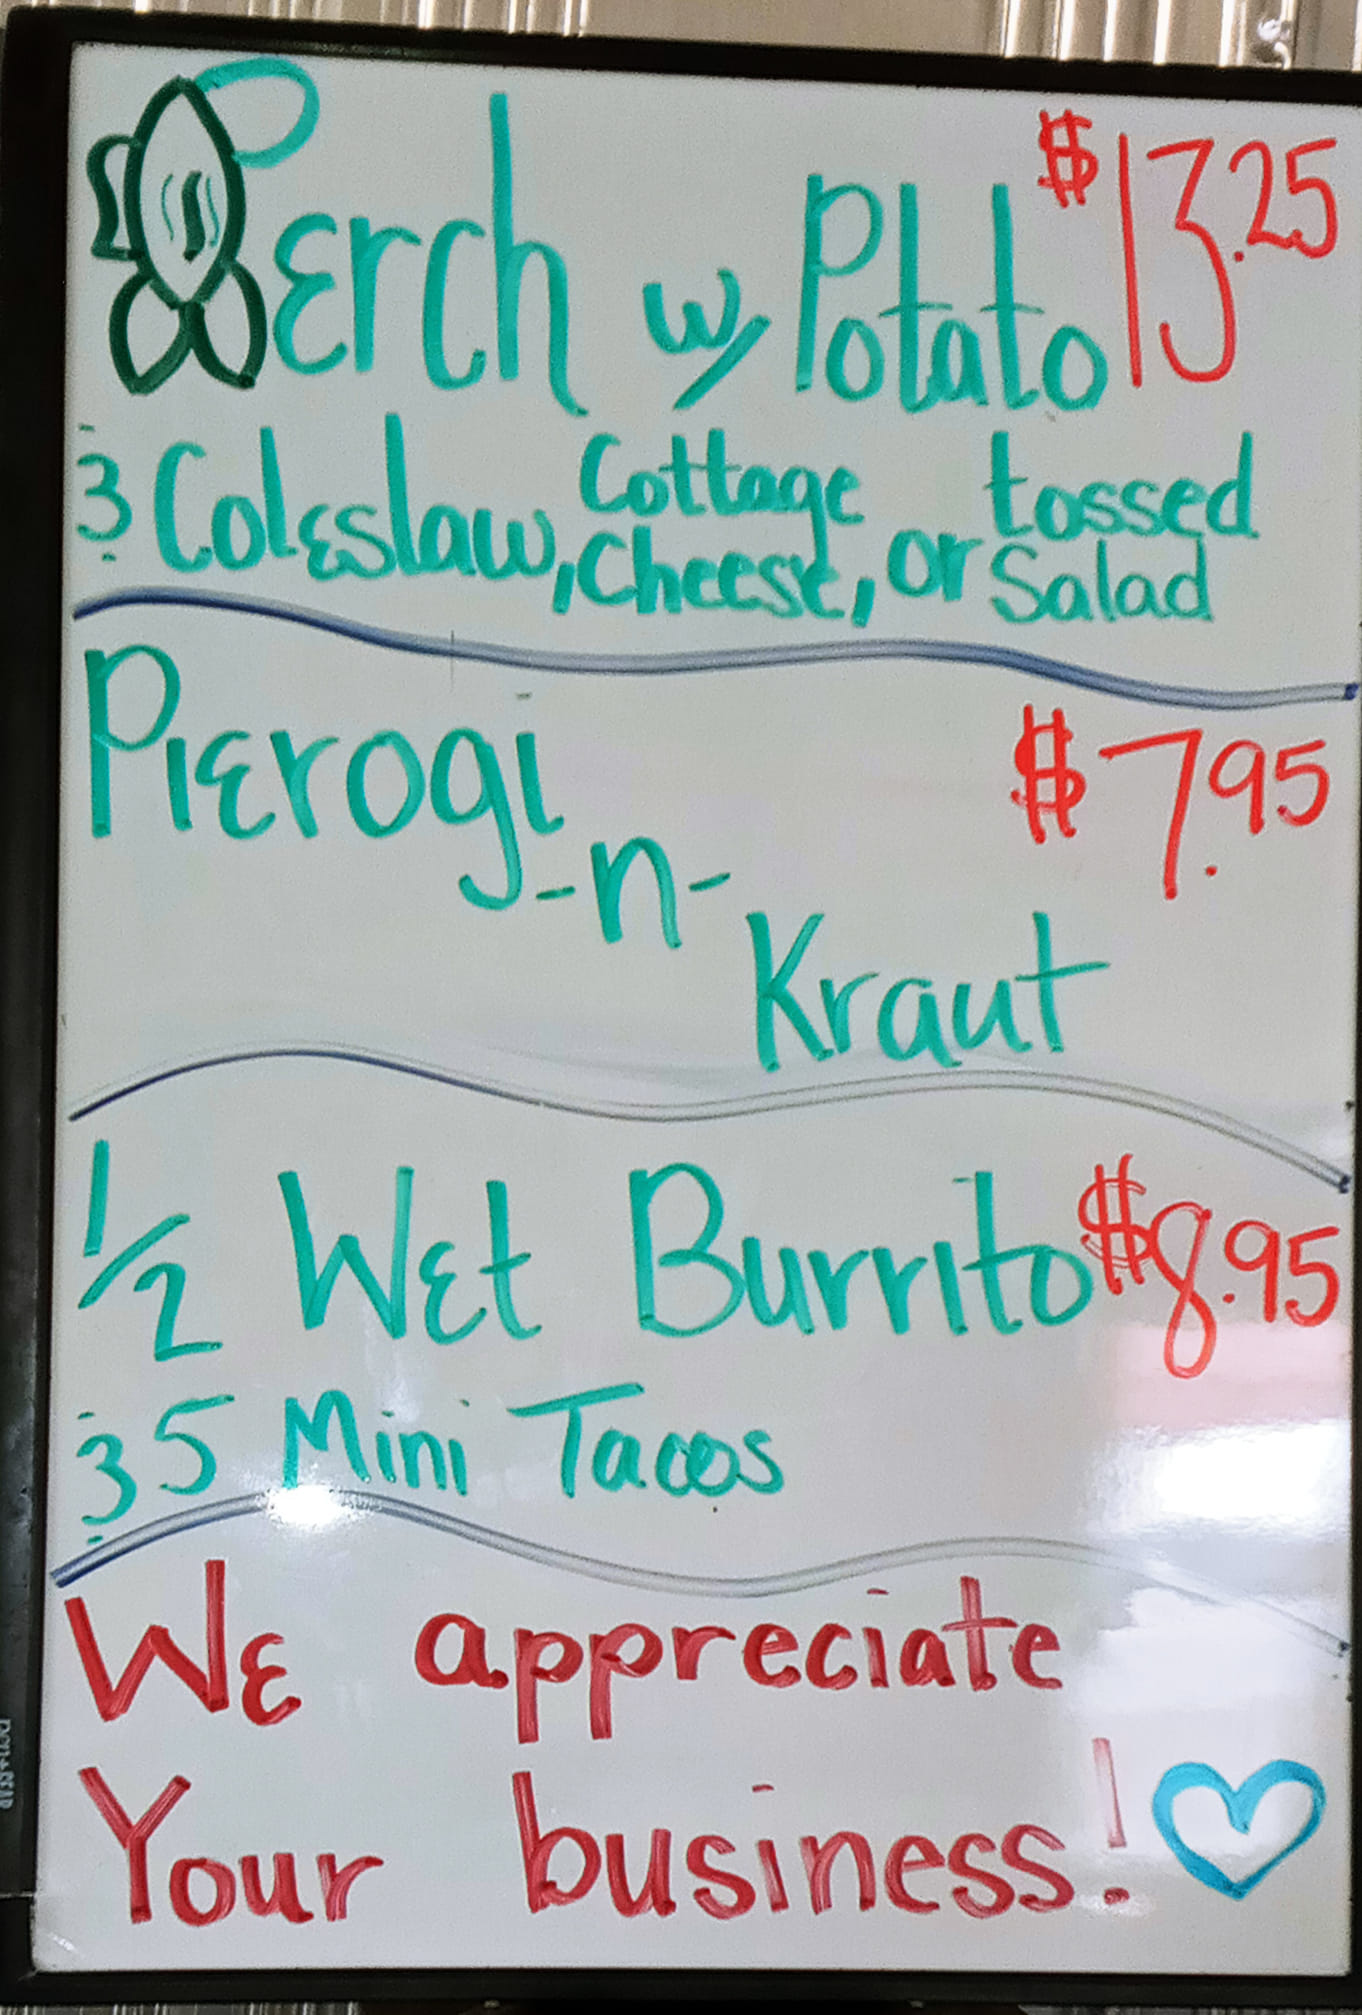 Perch w/ Potato $13.25
& Coleslaw, Cottage Cheese, or tossed Salad
Pierogi $7.95
-n-
Kraut
1/2 Wet Burrito $8.95
& 5 Mini Tacos
We appreciate
Your business!